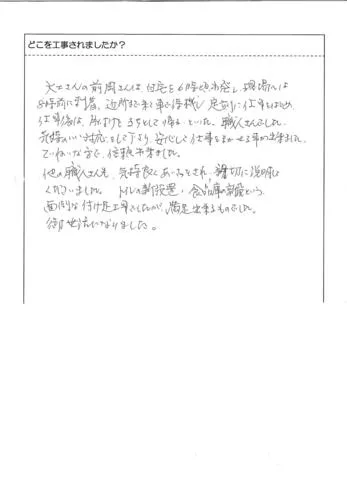 どこを工事されましたか？
大工さんの前岡さんは、自宅を6時頃出発し、現場へは
8時前に到着、近所まで来て車で待機し定刻に仕事をはじめ
仕事後は、片づけをきちんとして帰るといった、職人さんでした。
気持のいい対応をして下さり、安心して仕事をまかせる事が出来ました。
ていねいな方で、信頼出来ました。
他の職人さんも、気持良くあいさつされ、親切に説明して
くださいました。トイレの新設置、食品庫の新設という
面倒な付け足工事でしたが、満足出来るものでした。
御世話になりました。